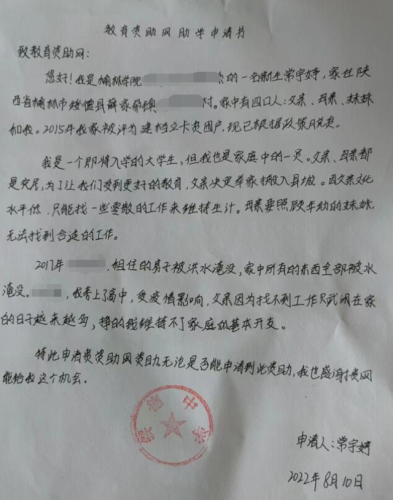 教育资助网助学申请书
致教育资助网:
您好!我是榆林学院 的一名新生常宇婷,家住陕
西省榆林市绥德县薛家 村。家中有四口人:父亲、母亲、妹妹
和我。2015年我家被评为建档立卡贫困户,现已根据政策脱贫。
我是一个即将入学的大学生,但我也是家庭中的一员。父亲、母亲都
是农民,为了让我们受到更好的教育,父亲决定举家搬入县城。因父亲文化
水平低,只能找一些零散的工作来维持生计。母亲要照顾年幼的妹妹,
无法找到合适的工作。
2017年 ,租住的房子被洪水淹没,家中所有的东西全部被水
淹没。 ,我考上了高中,受疫情影响,父亲因为找不到工作只武闲在家
的日子越来越多,挣的钱维持不了家庭的基本开支。
特此申请贵资助网资助,无论是否能申请到此资助,我也感谢贵网
能给我这个机会。
申请人:常宇婷
2022年8月10日